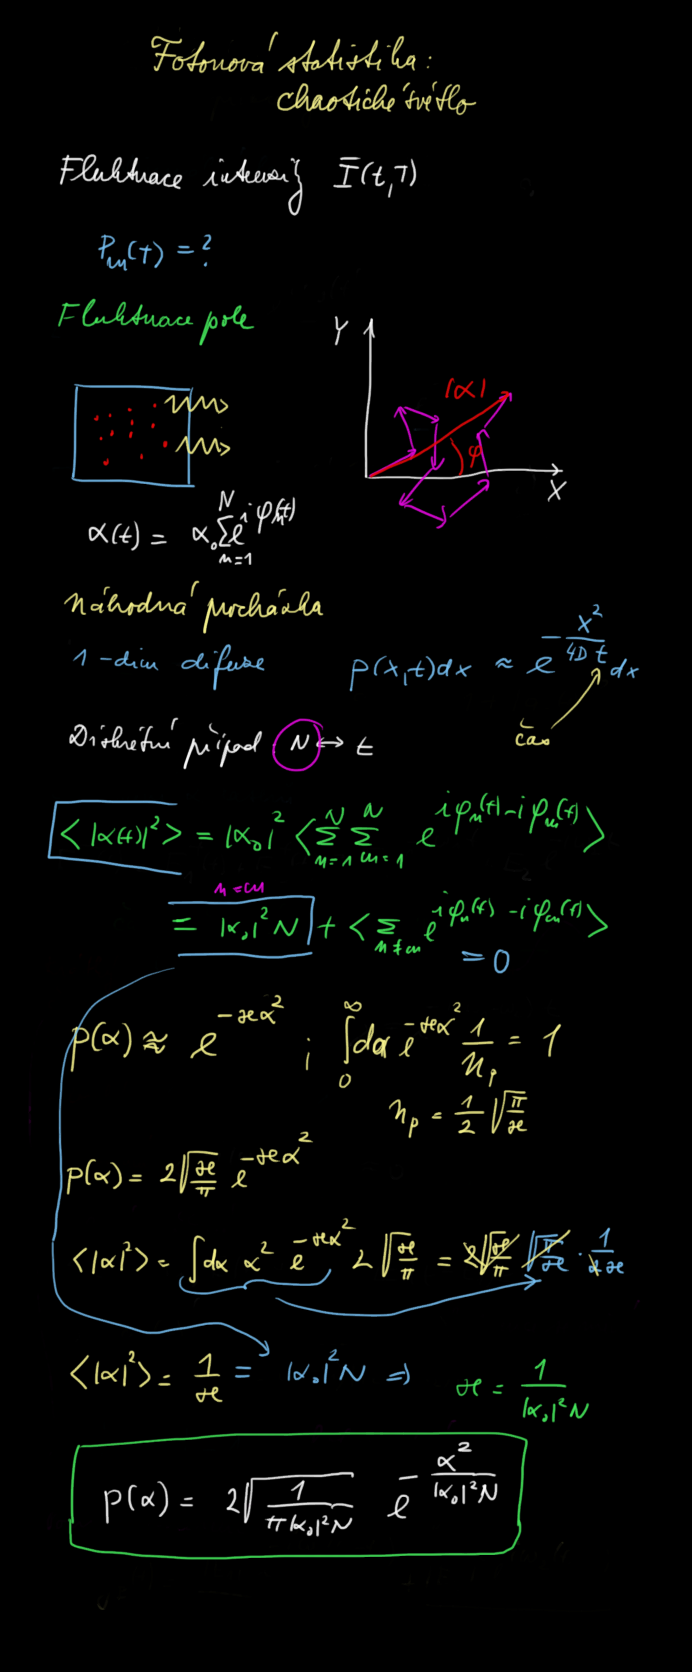 Fotonová statistika:
chaotické světlo
Fluktuace intenzity Ī(t,T)
Pₘ(T) = ?
Fluktuace pole
Y
|α|
φ
X
α(t) = α₀ ∑ₙ₌₁ᴺ e^{iφₙ(t)}
Náhodná procházka
1-dim difuse p(x,t)dx ≈ e^{-x²/4Dt} dx
čas
Diskrétní případ N ↔ t
<|α(t)|²> = |α₀|² <∑ₙ₌₁ᴺ ∑ₘ₌₁ᴺ e^{iφₙ(t)-iφₘ(t)}>
n=m
= |α₀|² N + <∑_{n≠m} e^{iφₙ(t)-iφₘ(t)}>
= 0
p(α) ≈ e^{-æα²} ; ∫₀^∞ dα e^{-æα²} 1/nₚ = 1
nₚ = 1/2 √(π/æ)
p(α) = 2√(æ/π) e^{-æα²}
<|α|²> = ∫dα α² e^{-æα²} 2√(æ/π) = 2√(æ/π) √(π/æ) · 1/2æ
<|α|²> = 1/æ = |α₀|² N ⇒ æ = 1/|α₀|²N
p(α) = 2√(1/π|α₀|²N) e^{-α²/|α₀|²N}